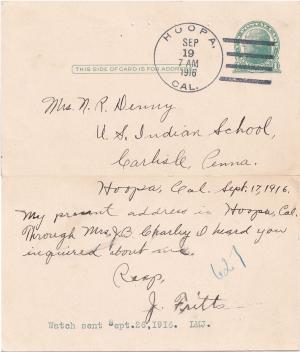 HOOPA,
SEP
19
7 AM
1916
CAL.
THIS SIDE OF CARD IS FOR ADDRESS
Mrs. N. R. Denny
U. S. Indian School,
Carlisle, Penna.
Hoopa, Cal. Sept. 17, 1916.
My present address is Hoopa, Cal.
Through Mrs. J.B. Charley I heard you
inquired about me.
Resp,
J. Fritts
627
Watch sent Sept. 26, 1916. LMJ.